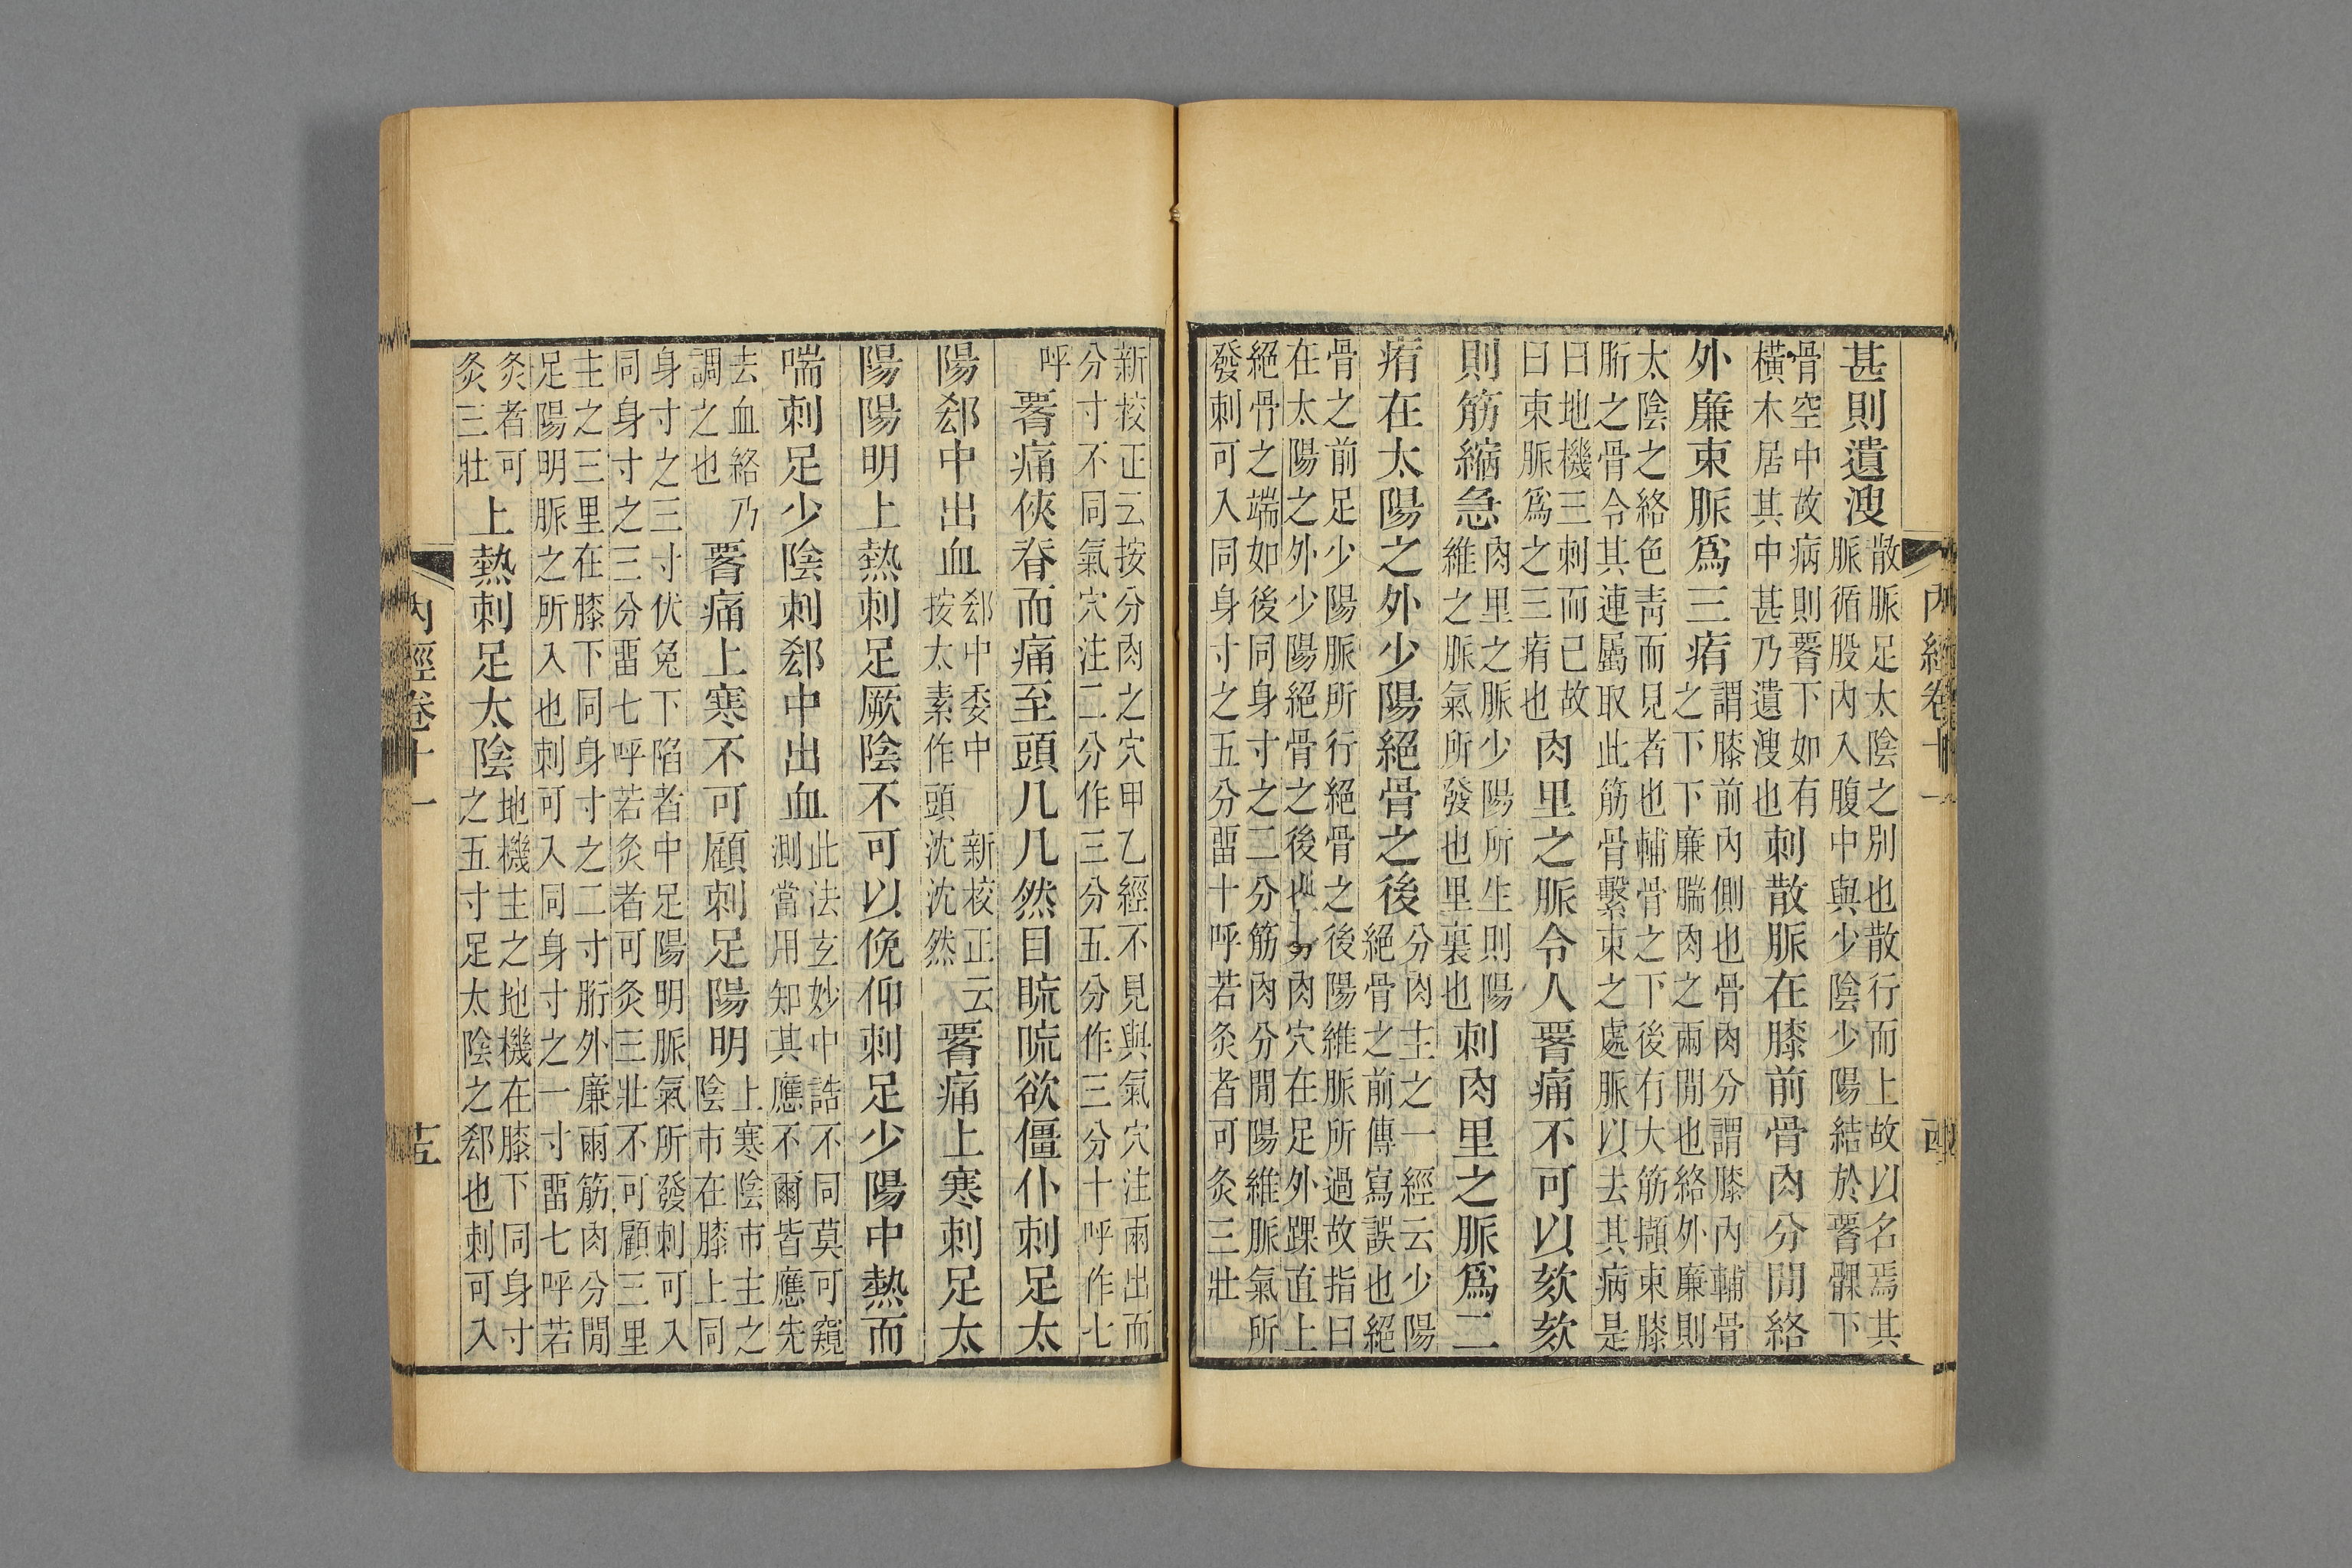 甚則遺溲
散脈足太陰之別也散行而上故以名焉其
脈循股內入腹中與少陰少陽結於腰髁下
骨空中故病則腰下如有
橫木居其中甚乃遺溲也
刺散脈在膝前骨肉分閒絡
外廉束脈爲三痏
謂膝前內側也骨肉分謂膝內輔骨
之下下廉腨肉之兩閒也絡外廉則
太陰之絡色靑而見者也輔骨之下後有大筋擷束膝
胻之骨令其連屬取此筋骨繫束之處脈以去其病是
曰地機三刺而已故
曰束脈爲之三痏也
肉里之脈令人腰痛不可以欬欬
則筋縮急
肉里之脈少陽所生則陽
維之脈氣所發也里裏也
刺肉里之脈爲二
痏在太陽之外少陽絕骨之後
分肉主之一經云少陽
絕骨之前傳寫誤也絕
骨之前足少陽脈所行絕骨之後陽維脈所過故指曰
在太陽之外少陽絕骨之後也分肉穴在足外踝直上
絕骨之端如後同身寸之二分筋肉分閒陽維脈氣所
發刺可入同身寸之五分畱十呼若灸者可灸三壯
內經卷十一
新校正云按分肉之穴甲乙經不見與氣穴注兩出而
分寸不同氣穴注二分作三分五分作三分十呼作七
呼
腰痛俠脊而痛至頭几几然目䀮䀮欲僵仆刺足太
陽郄中出血
郄中委中
按太素作頭
新校正云
沈沈然
腰痛上寒刺足太
陽陽明上熱刺足厥陰不可以俛仰刺足少陽中熱而
喘刺足少陰刺郄中出血
此法玄妙中誥不同莫可窺
測當用知其應不爾皆應先
去血絡乃
調之也
腰痛上寒不可顧刺足陽明
上寒陰市主之
陰市在膝上同
身寸之三寸伏兔下陷者中足陽明脈氣所發刺可入
同身寸之三分畱七呼若灸者可灸三壯不可顧三里
主之三里在膝下同身寸之二寸胻外廉兩筋肉分閒
足陽明脈之所入也刺可入同身寸之一寸畱七呼若
灸者可
灸三壯
上熱刺足太陰
地機主之地機在膝下同身寸
之五寸足太陰之郄也刺可入
內經卷十一